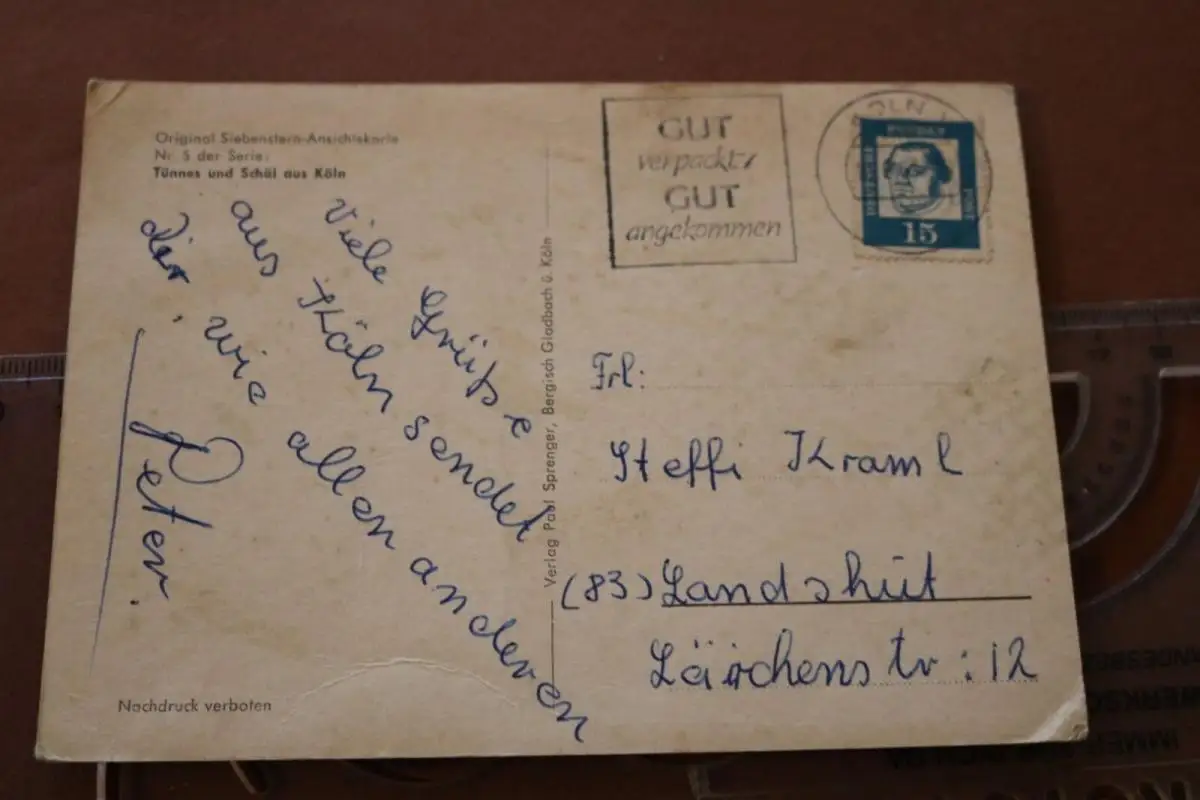 Original Siebenstern-Ansichtskarte
Nr. 5 der Serie:
Tünnes und Schäl aus Köln
Viele Grüße
aus Köln sendet
Dir, wie allen anderen
Peter.
Nachdruck verboten
Verlag Paul Sprenger, Bergisch Gladbach ü. Köln
GUT
verpackt
GUT
angekommen
DEUTSCHE
BUNDES
POST
15
Frl:
Steffi Kraml
(83) Landshut
Lärchenstr: 12